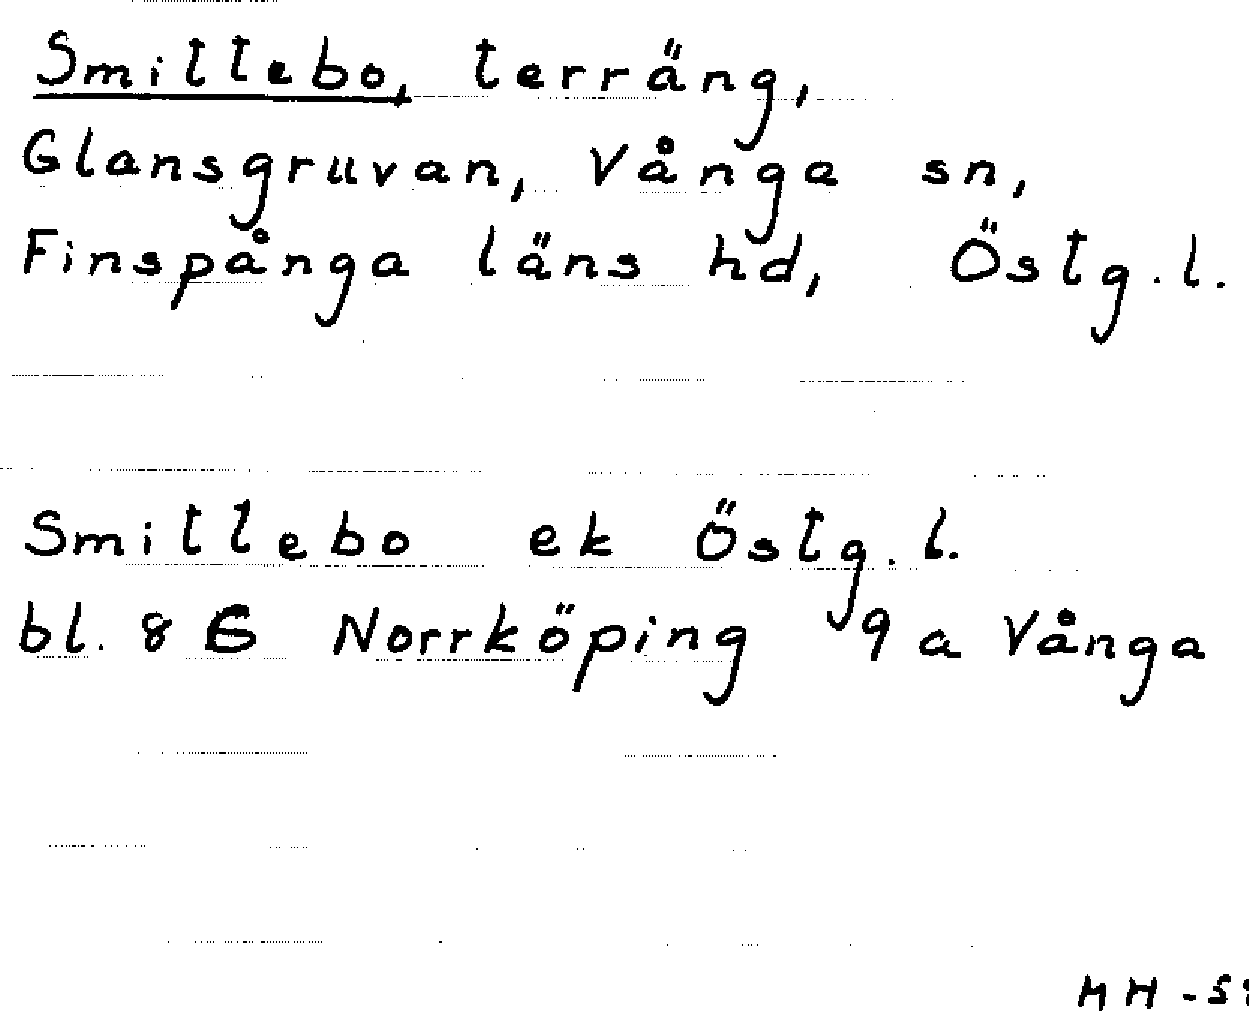 Smittebo, terräng,
Glansgruvan, Vånga sn,
Finspånga läns hd, Östg.l.
Smittebo ek Östg.l.
bl. 8 G Norrköping 9 a Vånga